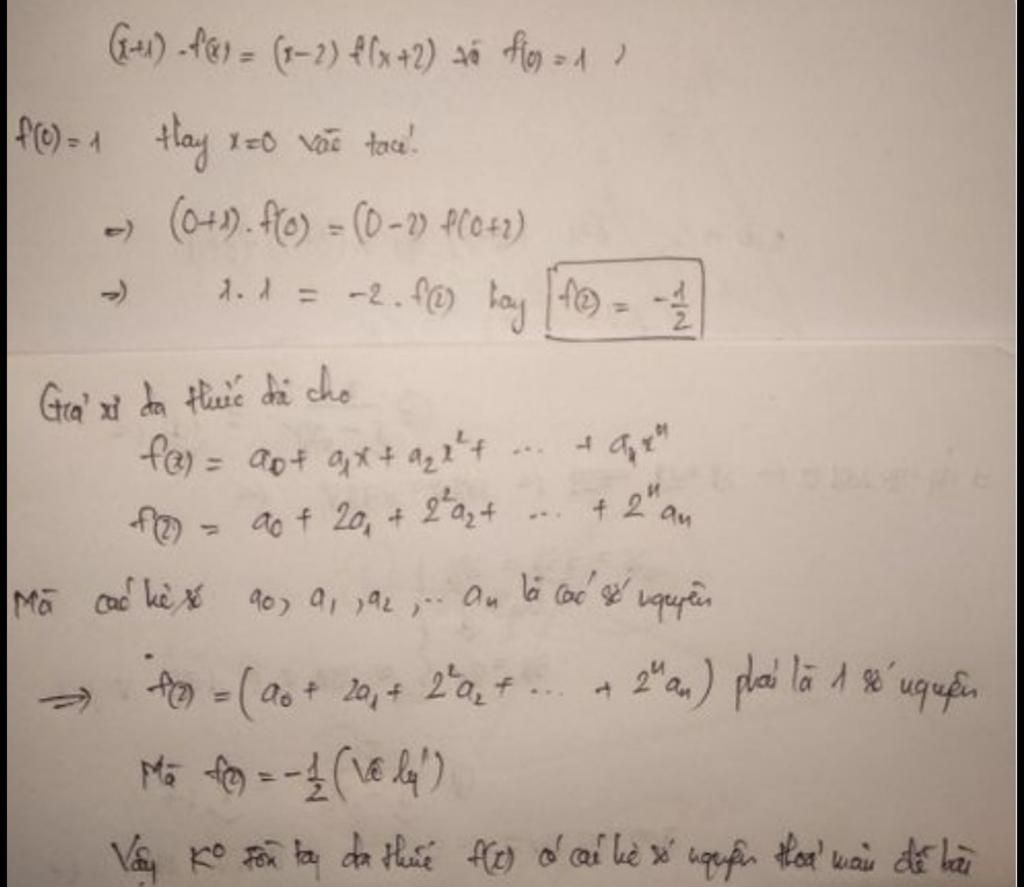 (x+1).f(x) = (x-2) f(x+2) và f(0) = 1 ,
f(0) = 1 thay x=0 vào ta có:
=> (0+1).f(0) = (0-2) f(0+2)
=> 1.1 = -2.f(2) hay f(2) = -1/2
Giả sử đa thức đã cho
f(x) = a₀ + a₁x + a₂x² + ... + aₙxⁿ
f(2) = a₀ + 2a₁ + 2²a₂ + ... + 2ⁿaₙ
Mà các hệ số a₀, a₁, a₂, .. aₙ là các số nguyên
=> f(2) = (a₀ + 2a₁ + 2²a₂ + ... + 2ⁿaₙ) phải là 1 số nguyên
Mà f(2) = -1/2 (Vô lý)
Vậy K° tồn tại đa thức f(x) có các hệ số nguyên thoả mãn đề bài